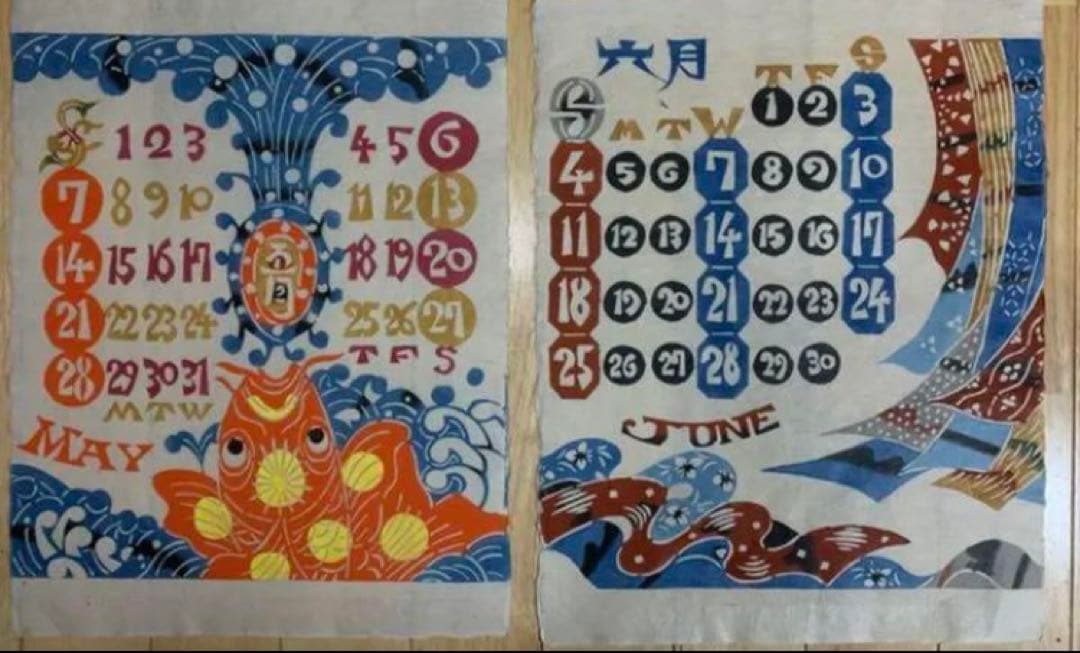 S 1 2 3 4 5 6
7 8 9 10 11 12 13
14 15 16 17 18 19 20
21 22 23 24 25 26 27
28 29 30 31 T F S
M T W
MAY
六月
S M T W T F S
1 2 3
4 5 6 7 8 9 10
11 12 13 14 15 16 17
18 19 20 21 22 23 24
25 26 27 28 29 30
JUNE